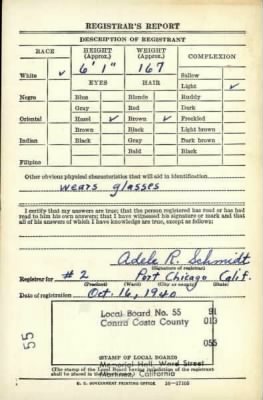 REGISTRAR'S REPORT
DESCRIPTION OF REGISTRANT
RACE HEIGHT (Approx.) WEIGHT (Approx.) COMPLEXION
White ✓ 6' 1" 167 Sallow
EYES HAIR Light ✓
Negro Blue Blonde Ruddy
Gray Red Dark
Oriental Hazel ✓ Brown ✓ Freckled
Brown Black Light brown
Indian Black Gray Dark brown
Bald Black
Filipino
Other obvious physical characteristics that will aid in identification
wears glasses
I certify that my answers are true; that the person registered has read or has had
read to him his own answers; that I have witnessed his signature or mark and that
all of his answers of which I have knowledge are true, except as follows:
Adele R. Schmidt
(Signature of registrar)
Registrar for #2 Port Chicago Calif.
(Precinct) (Ward) (City or county) (State)
Date of registration Oct. 16, 1940
Local Board No. 55 91
Contra Costa County 013
055
55
STAMP OF LOCAL BOARD
Memorial Hall, Ward Street
(The stamp of the Local Board having jurisdiction of the registrant
shall be placed in the
Martinez, California
U. S. GOVERNMENT PRINTING OFFICE 16-17105